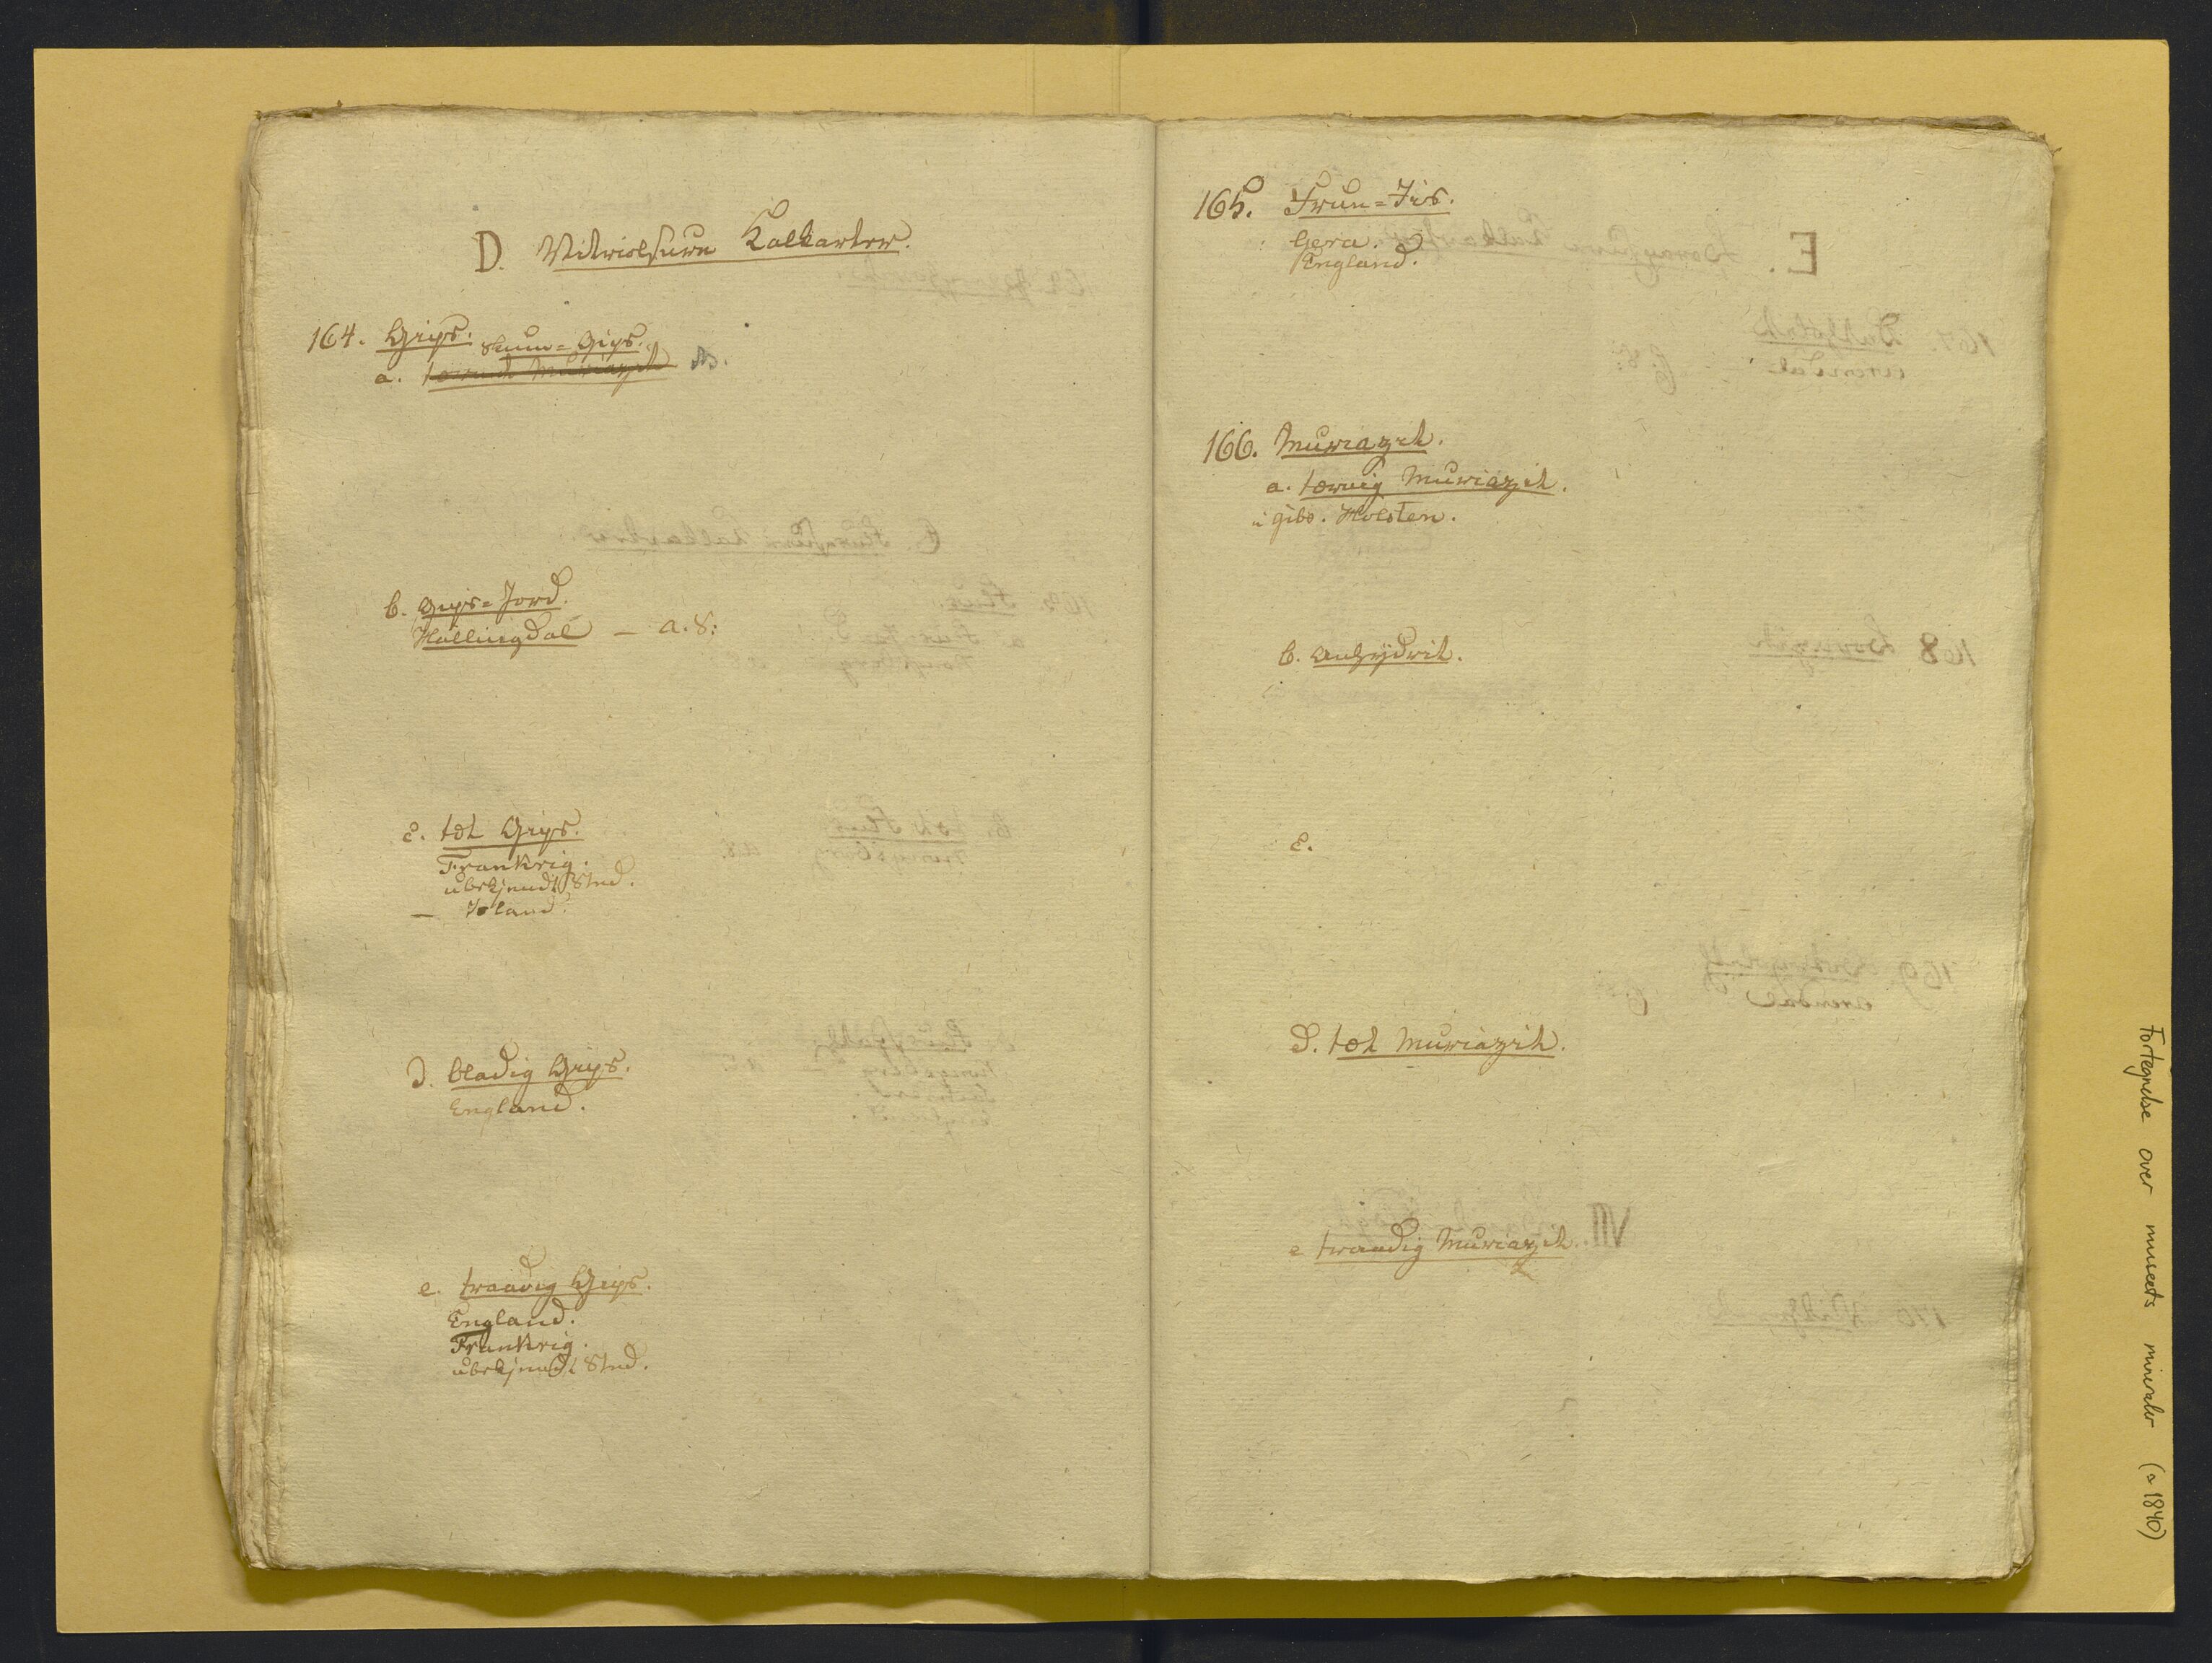 D. Vitriolsure Kalkarter.
164. Gips.
Skum=Gips.
a. tærnet Muriazit
b. Gips=Jord.
Hallingdal — a. 8:
c. tæt Gips.
Frankrig.
ubekjendt Sted.
— Island.
d. bladig Gips.
England.
e. traadig Gips.
England.
Frankrig.
ubekjendt Sted.
165. Frue=Iis.
Gera.
England.
166. Muriazit.
a. tærnig Muriazit.
i gibs. Holsten.
b. Anhydrit.
c.
d. tæt Muriazit.
e traadig Muriazit.
Fortegnelse over museets mineraler (ca 1840)